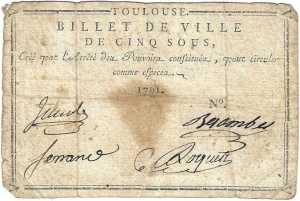 TOULOUSE.
BILLET DE VILLE
DE CINQ SOUS,
Créé par l'Arrêté des Pouvoirs constitués, pour circuler
comme especes.
1791.
N°.
Descombes